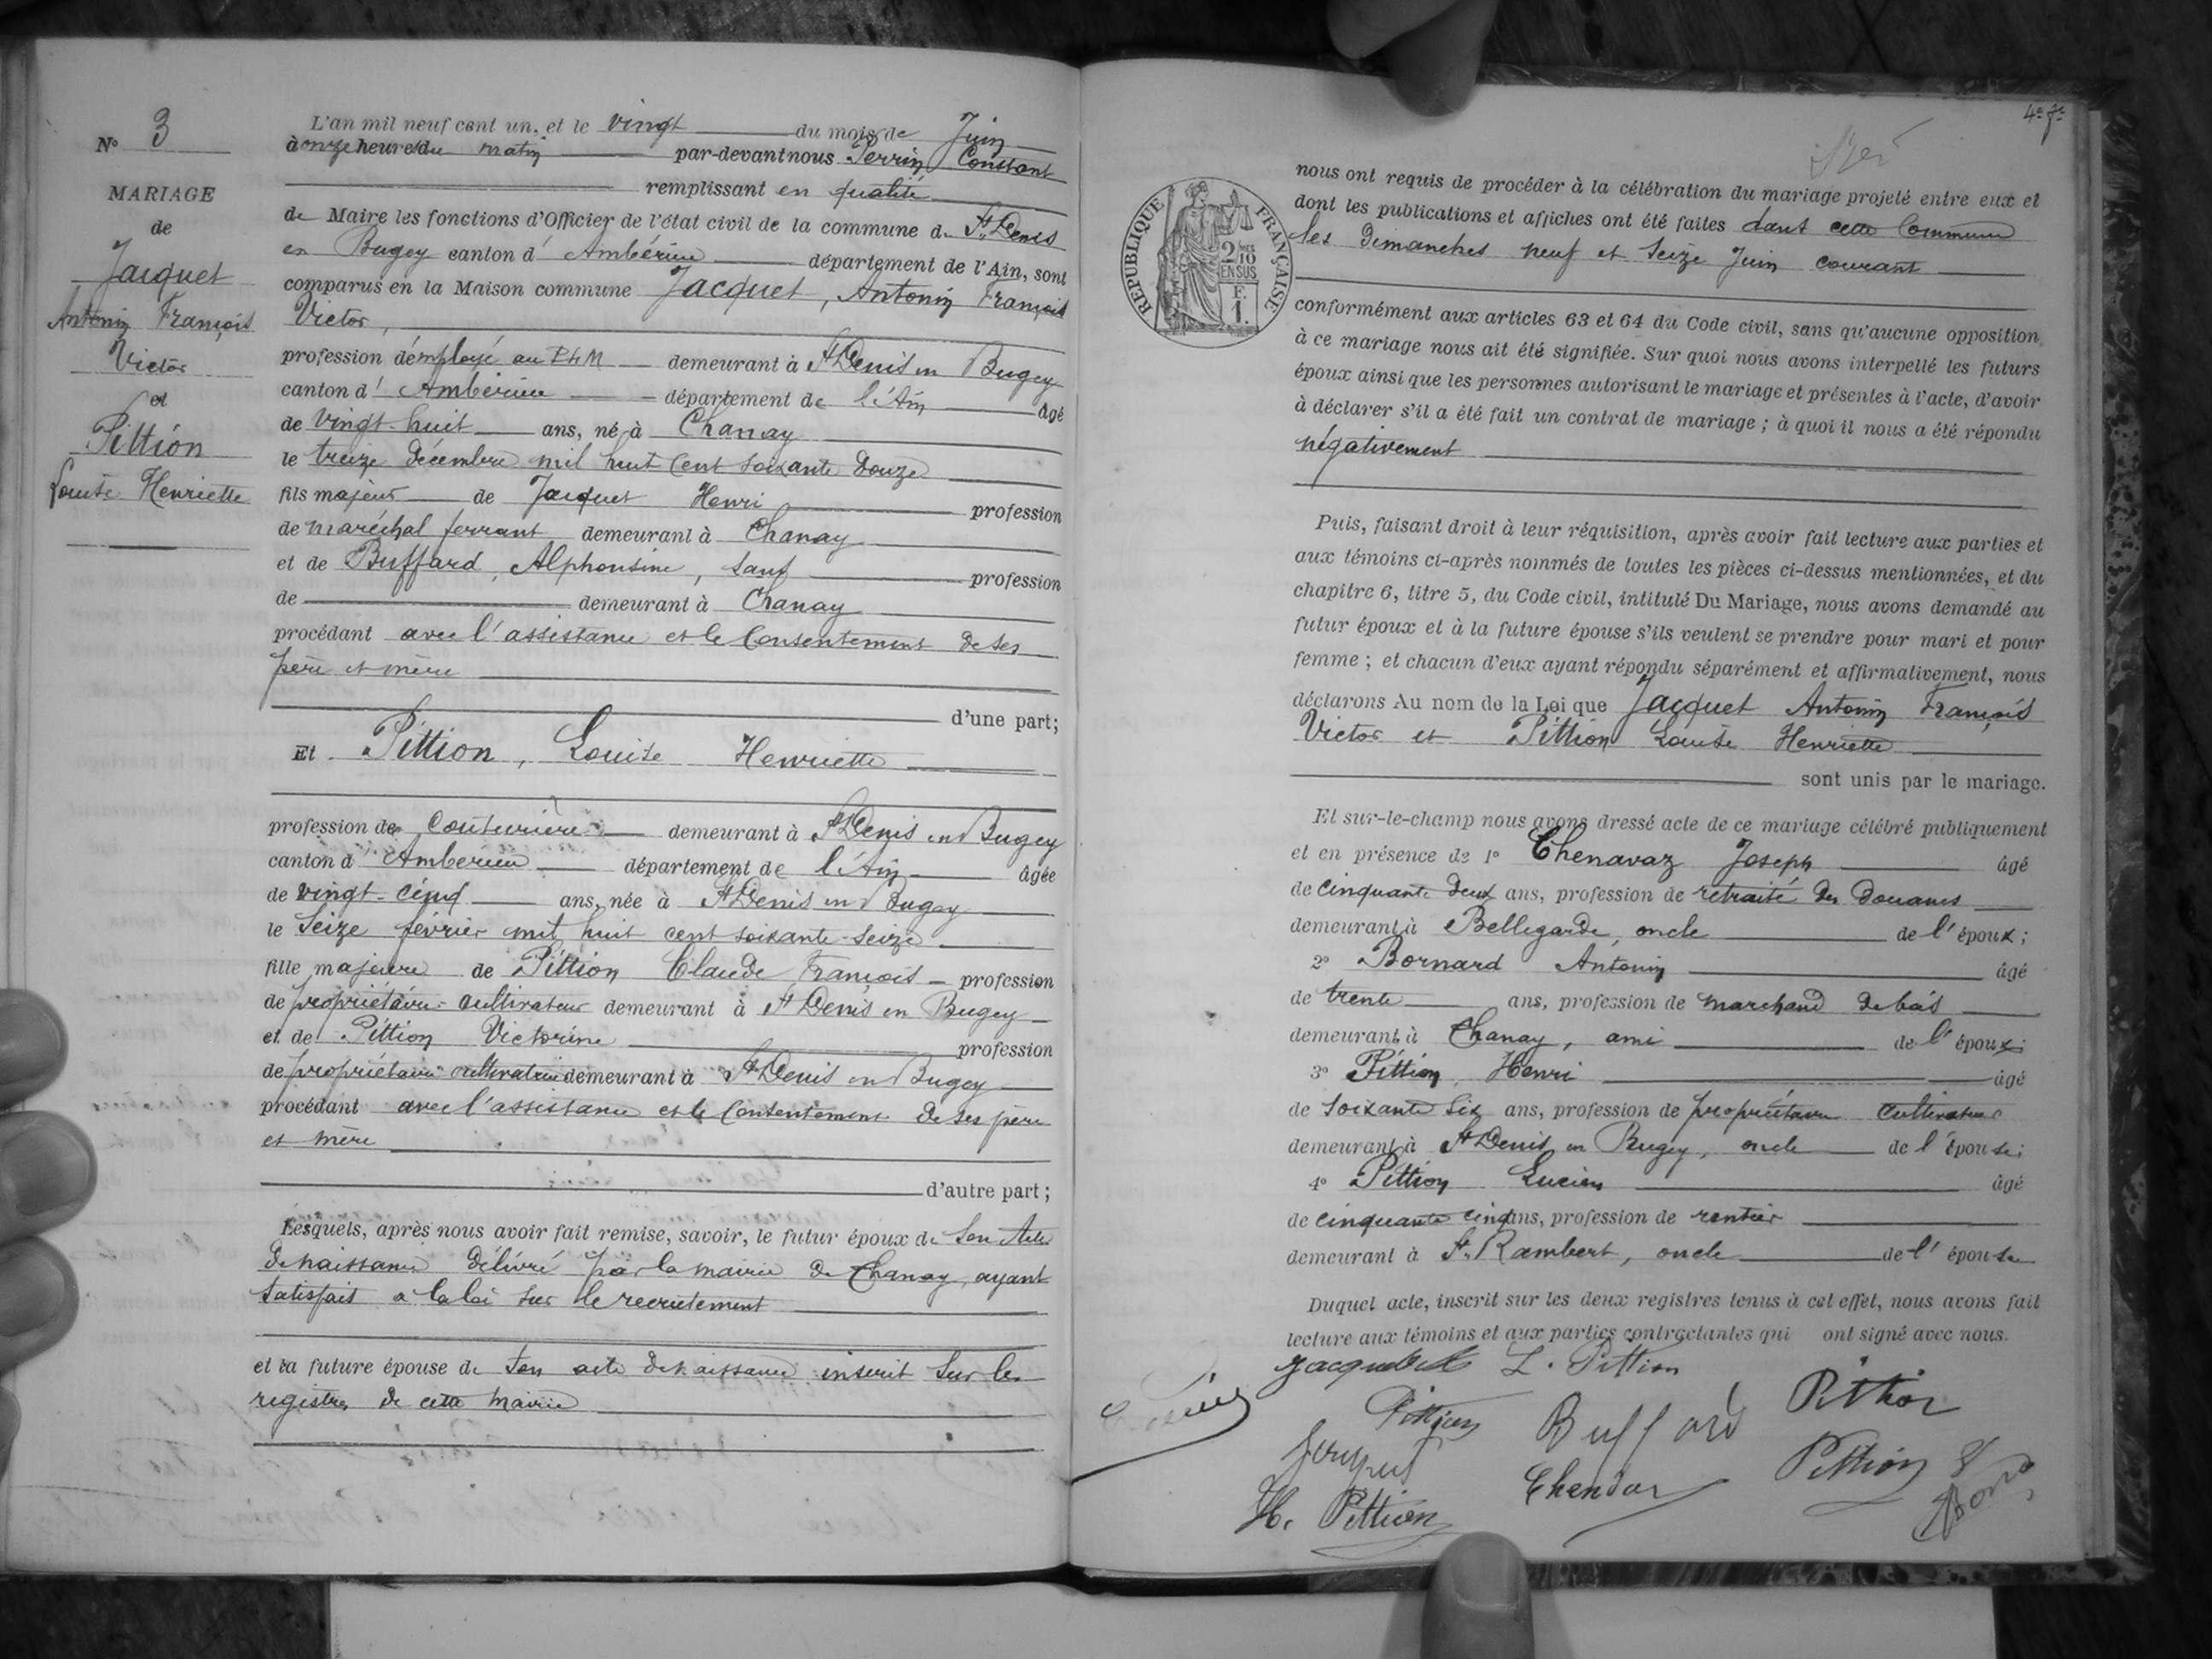 N° 3
MARIAGE
de
Jacquet
Antonin François
Victor
et
Pittion
Louise Henriette
L'an mil neuf cent un, et le vingt du mois de Juin
à onze heures du matin par-devant nous Perrin Constant
remplissant en qualité
de Maire les fonctions d'Officier de l'état civil de la commune de St Denis
en Bugey canton d' Ambérieu département de l'Ain, sont
comparus en la Maison commune Jacquet, Antonin François
Victor,
profession d'employé au PLM demeurant à St Denis en Bugey
canton d' Ambérieu département de l'Ain âgé
de vingt-huit ans, né à Chanay
le treize Décembre mil huit cent soixante douze
fils majeur de Jacquet Henri profession
de maréchal ferrant demeurant à Chanay
et de Buffard, Alphonsine, sans profession
de demeurant à Chanay
procédant avec l'assistance et le consentement de ses
père et mère
d'une part;
Et Pittion, Louise Henriette
profession de couturière demeurant à St Denis en Bugey
canton d' Ambérieu département de l'Ain âgée
de vingt-cinq ans, née à St Denis en Bugey
le seize février mil huit cent soixante-seize
fille majeure de Pittion Claude François profession
de propriétaire-cultivateur demeurant à St Denis en Bugey
et de Pittion Victorine profession
de propriétaire cultivateur demeurant à St Denis en Bugey
procédant avec l'assistance et le consentement de ses père
et mère
d'autre part;
Lesquels, après nous avoir fait remise, savoir, le futur époux de son Acte
de naissance délivré par la mairie de Chanay, ayant
satisfait a la loi sur le recrutement
et la future épouse de son acte de naissance inscrit sur les
registres de cette mairie
4e f.
RÉPUBLIQUE FRANÇAISE
2/10 EN SUS
F.
1.
nous ont requis de procéder à la célébration du mariage projeté entre eux et
dont les publications et affiches ont été faites dans cette Commune
les Dimanches neuf et seize Juin courant
conformément aux articles 63 et 64 du Code civil, sans qu'aucune opposition
à ce mariage nous ait été signifiée. Sur quoi nous avons interpellé les futurs
époux ainsi que les personnes autorisant le mariage et présentes à l'acte, d'avoir
à déclarer s'il a été fait un contrat de mariage; à quoi il nous a été répondu
négativement
Puis, faisant droit à leur réquisition, après avoir fait lecture aux parties et
aux témoins ci-après nommés de toutes les pièces ci-dessus mentionnées, et du
chapitre 6, titre 5, du Code civil, intitulé Du Mariage, nous avons demandé au
futur époux et à la future épouse s'ils veulent se prendre pour mari et pour
femme; et chacun d'eux ayant répondu séparément et affirmativement, nous
déclarons Au nom de la Loi que Jacquet Antonin François
Victor et Pittion Louise Henriette
sont unis par le mariage.
Et sur-le-champ nous avons dressé acte de ce mariage célébré publiquement
et en présence de 1° Chenavaz Joseph âgé
de cinquante deux ans, profession de retraité des Douanes
demeurant à Bellegarde, oncle de l'époux;
2° Bornard Antonin âgé
de trente ans, profession de marchand de bois
demeurant à Chanay, ami de l'époux;
3° Pittion, Henri âgé
de soixante six ans, profession de propriétaire cultivateur
demeurant à St Denis en Bugey, oncle de l'épouse;
4° Pittion Lucien âgé
de cinquante cinq ans, profession de rentier
demeurant à St Rambert, oncle de l'épouse
Duquel acte, inscrit sur les deux registres tenus à cet effet, nous avons fait
lecture aux témoins et aux parties contractantes qui ont signé avec nous.
L. Pittion
Pittion Buffard Pittion
H. Pittion Pittion